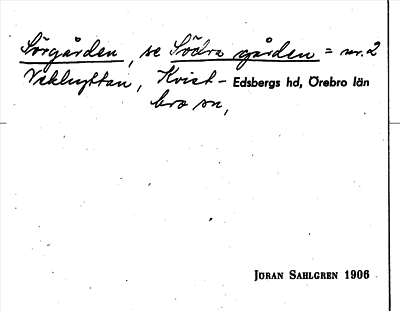 Sörgården, se Södra gården = nr. 2
Vekhyttan, Kvist- Edsbergs hd, Örebro län
bro sn,
JÖRAN SAHLGREN 1906